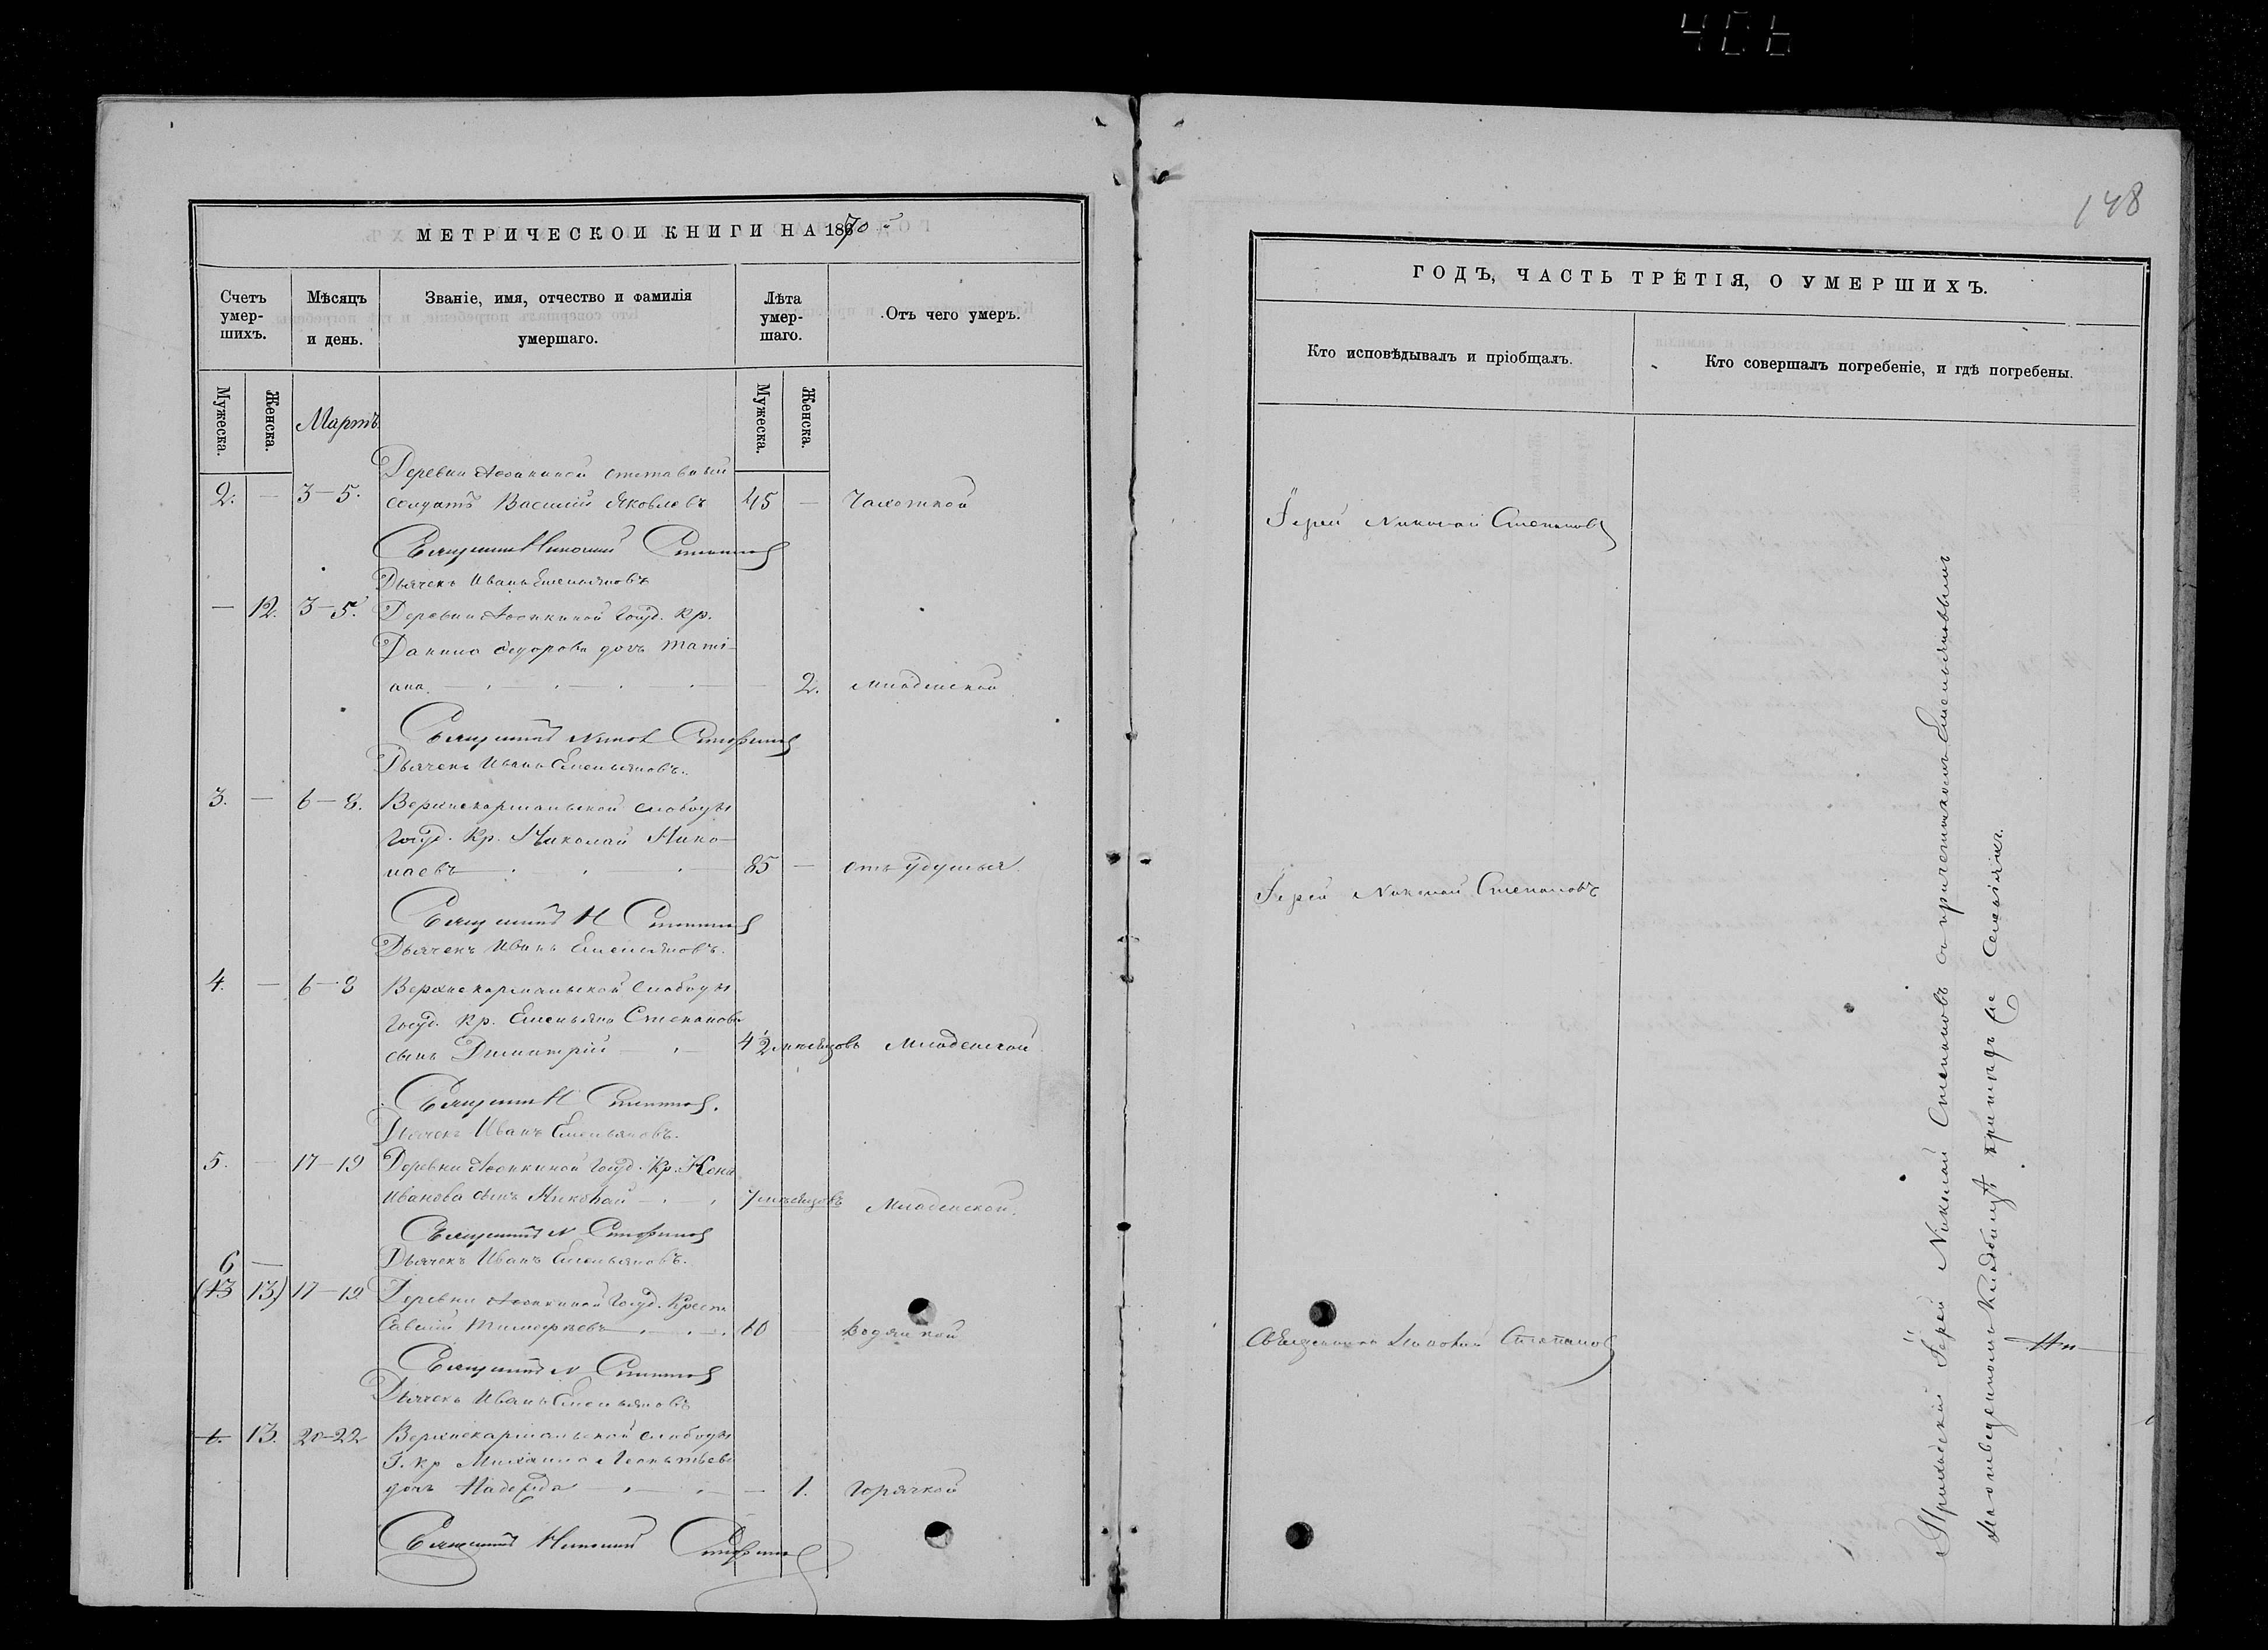 148
МЕТРИЧЕСКОЙ КНИГИ НА 1870
Счетъ умер-шихъ.
Мѣсяцъ и день.
Званіе, имя, отчество и фамилія умершаго.
Лѣта умер-шаго.
Отъ чего умеръ.
Мужеска.
Женска.
Мартъ
Мужеска.
Женска.
Деревни отставный
2. — 3–5. солдатъ Василій Яковлевъ 45 — Чахоткой
Священникъ Николай Степановъ
Дьячекъ Иванъ Емельяновъ
— 12. 3–5. Деревни Госуд. Кр.
Данила Федорова дочь Тати-
ана — 2. Младенской
Священникъ Степановъ
Дьячекъ Иванъ Емельяновъ.
3. — 6–8. Верхнекармальской слободы
Госуд. Кр. Николай Нико-
лаевъ 85 — отъ удушья
Священникъ Н Степановъ
Дьячекъ Иванъ Емельяновъ.
4. — 6–8 Верхнекармальской слободы
Госуд. Кр. Емельяна Степанова
сынъ Димитрій 4 1/2 мѣсяцовъ Младенской
Священникъ Н Степановъ.
Дьячекъ Иванъ Емельяновъ.
5. — 17–19 Деревни Госуд. Кр.
Иванова сынъ Николай 7 мѣсяцовъ Младенской.
Священникъ N Степановъ
Дьячекъ Иванъ Емельяновъ.
6 —
(13 13) 17–19 Деревни Госуд. Крест.
Савелій Тимофѣевъ 60 — Водяной
Священникъ N Степановъ
Дьячекъ Иванъ Емельяновъ
1. 13. 20–22 Верхнекармальской слободы
Г. Кр Михаила Леонтьева
дочь Надежда — 1. Горячкой
Священникъ Николай Степановъ
ГОДЪ, ЧАСТЬ ТРЕТІЯ, О УМЕРШИХЪ.
Кто исповѣдывалъ и пріобщалъ.
Кто совершалъ погребеніе, и гдѣ погребены.
Іерей Николай Степановъ
Іерей Николай Степановъ
Священникъ Николай Степановъ
Приходскій Іерей Николай Степановъ съ причетникомъ Емельяновымъ
на отведенномъ кладбищѣ